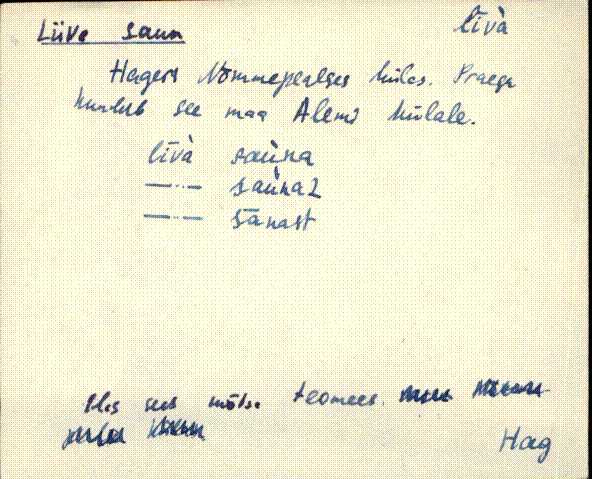 Liiva saun līvà
Hageri Nõmmepealses külas. Praegu
kuulub see maa Alemi külale.
līvà saùna
—·— saùna2
—·— sānast
Elas sees mõisa teomees.
Hag